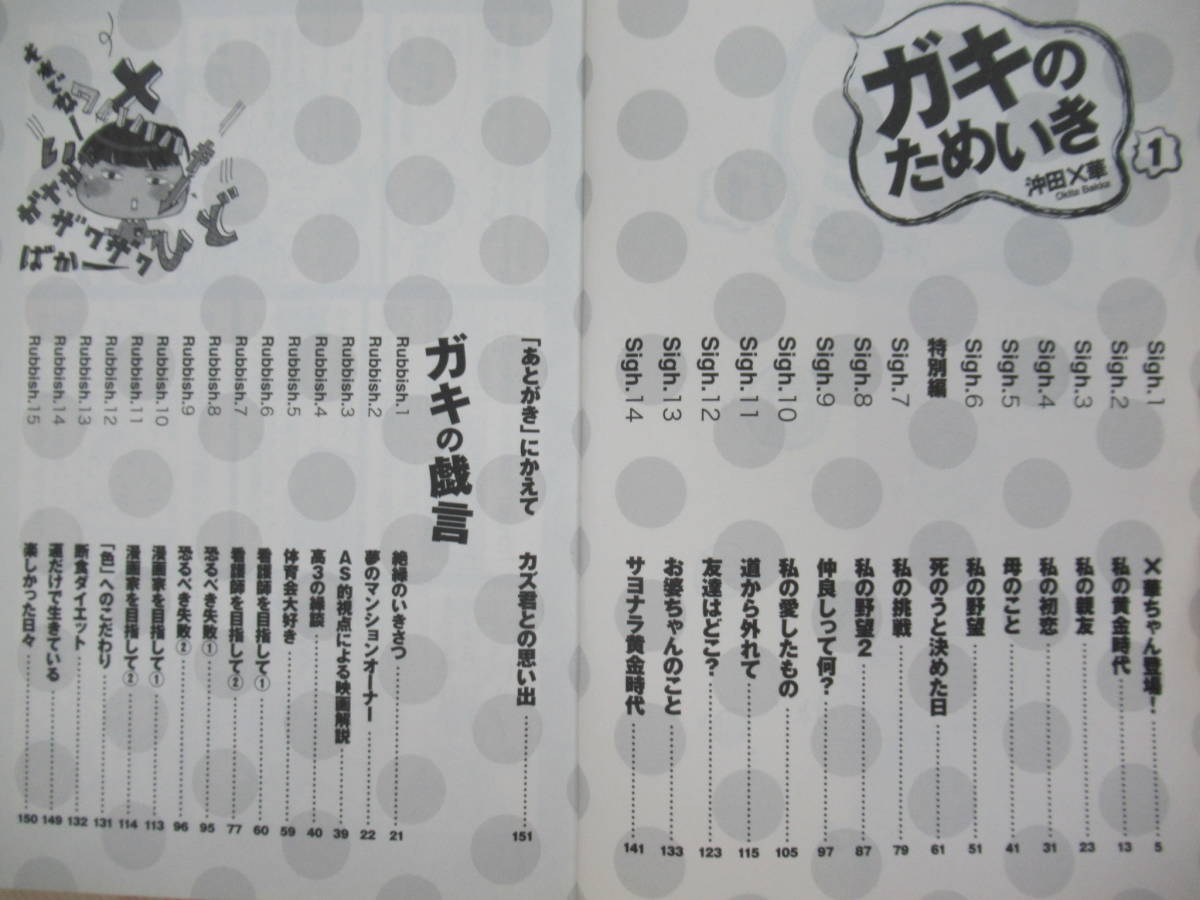 ガキの
ためいき
1
沖田×華
Okita Bakka
Sigh.1 ×華ちゃん登場！ 5
Sigh.2 私の黄金時代 13
Sigh.3 私の親友 23
Sigh.4 私の初恋 31
Sigh.5 母のこと 41
Sigh.6 私の野望 51
特別編 死のうと決めた日 61
Sigh.7 私の挑戦 79
Sigh.8 私の野望2 87
Sigh.9 仲良しって何？ 97
Sigh.10 私の愛したもの 105
Sigh.11 道から外れて 115
Sigh.12 友達はどこ？ 123
Sigh.13 お婆ちゃんのこと 133
Sigh.14 サヨナラ黄金時代 141
「あとがき」にかえて カズ君との思い出 151
ガキの戯言
Rubbish.1 絶縁のいきさつ 21
Rubbish.2 夢のマンションオーナー 22
Rubbish.3 AS的視点による映画解説 39
Rubbish.4 高3の縁談 40
Rubbish.5 体育会大好き 59
Rubbish.6 看護師を目指して① 60
Rubbish.7 看護師を目指して② 77
Rubbish.8 恐るべき失敗① 95
Rubbish.9 恐るべき失敗② 96
Rubbish.10 漫画家を目指して① 113
Rubbish.11 漫画家を目指して② 114
Rubbish.12 「色」へのこだわり 131
Rubbish.13 断食ダイエット 132
Rubbish.14 運だけで生きている 149
Rubbish.15 楽しかった日々 150
ザクザク
ばかー